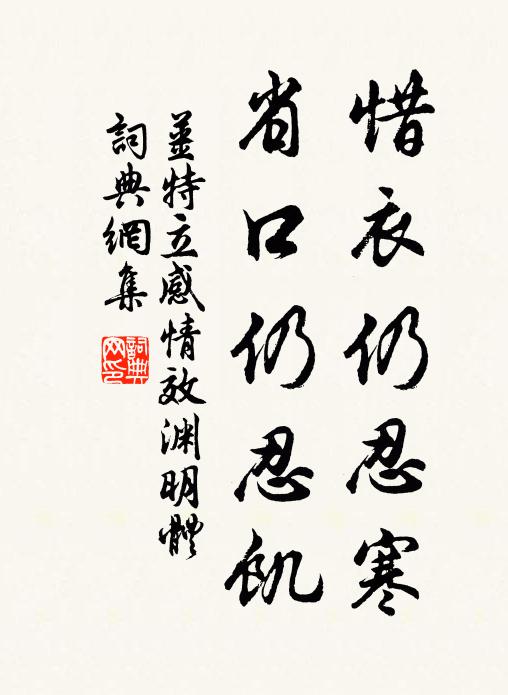 惜衣仍忍寒
省口仍忍飢
姜特立感情效淵明體
詞典網集
詞典網印